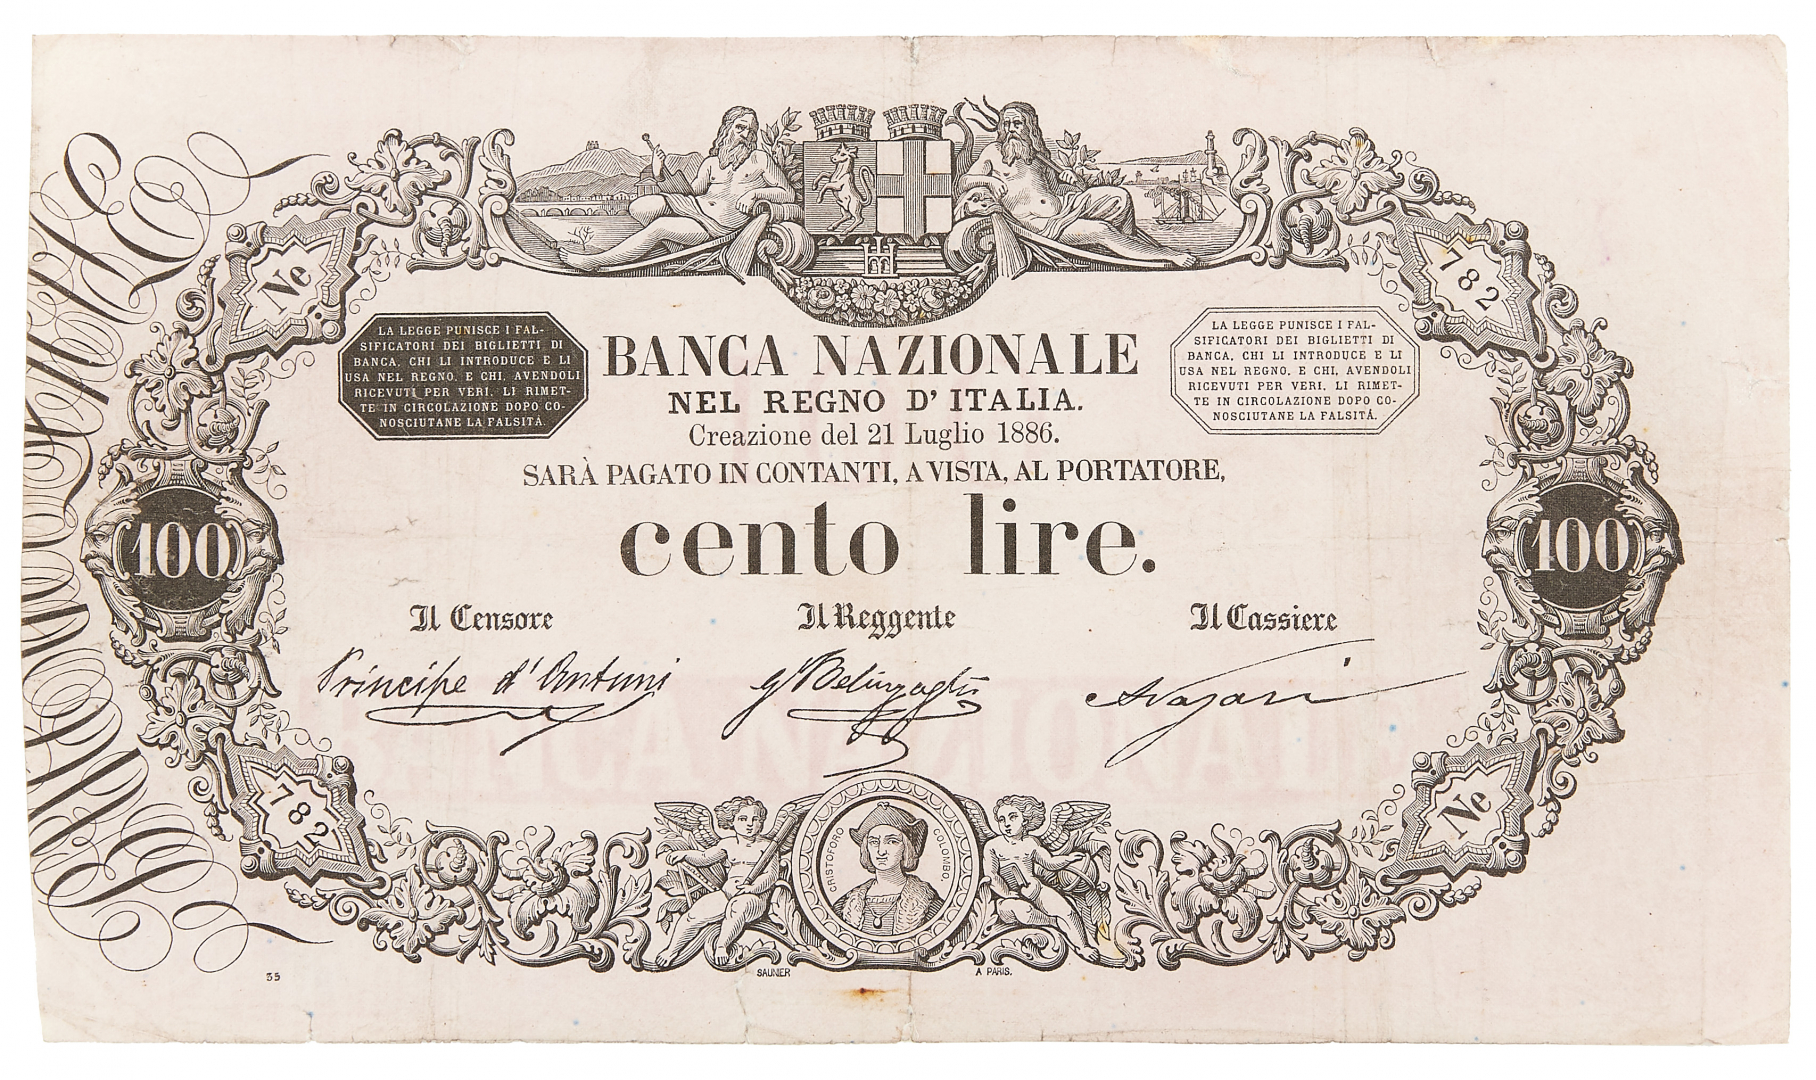 Ne
782
LA LEGGE PUNISCE I FAL-
SIFICATORI DEI BIGLIETTI DI
BANCA, CHI LI INTRODUCE E LI
USA NEL REGNO, E CHI, AVENDOLI
RICEVUTI PER VERI, LI RIMET-
TE IN CIRCOLAZIONE DOPO CO-
NOSCIUTANE LA FALSITÀ.
BANCA NAZIONALE
NEL REGNO D'ITALIA.
Creazione del 21 Luglio 1886.
LA LEGGE PUNISCE I FAL-
SIFICATORI DEI BIGLIETTI DI
BANCA, CHI LI INTRODUCE E LI
USA NEL REGNO, E CHI, AVENDOLI
RICEVUTI PER VERI, LI RIMET-
TE IN CIRCOLAZIONE DOPO CO-
NOSCIUTANE LA FALSITÁ.
SARÀ PAGATO IN CONTANTI, A VISTA, AL PORTATORE,
100
cento lire.
100
Il Censore
Il Reggente
Il Cassiere
Principe d'Antuni
782
Ne
CRISTOFORO COLOMBO.
35
SAUNIER
A PARIS.